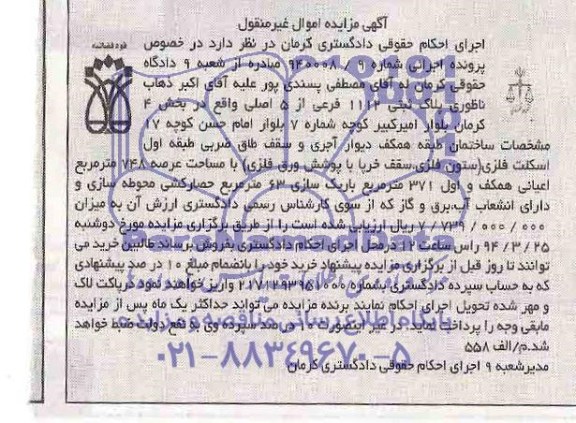 آگهی مزایده اموال غیرمنقول
قوه قضائیه
اجرای احکام حقوقی دادگستری کرمان در نظر دارد در خصوص
پرونده اجرائی شماره ۹۴۰۰۰۸/۹ صادره از شعبه ۹ دادگاه
حقوقی کرمان له آقای مصطفی پسندی پور علیه آقای اکبر ذهاب
ناظوری پلاک ثبتی ۱۱۱۲ فرعی از ۵ اصلی واقع در بخش ۴
کرمان بلوار امیرکبیر کوچه شماره ۷ بلوار امام حسن کوچه ۱۷
مشخصات ساختمان طبقه همکف دیوار آجری و سقف طاق ضربی طبقه اول
اسکلت فلزی(ستون فلزی،سقف خرپا با پوشش ورق فلزی) با مساحت عرصه ۷۴۸ مترمربع
اعیانی همکف و اول ۳۷۱ مترمربع باریک سازی ۶۳ مترمربع حصارکشی محوطه سازی و
دارای انشعاب آب،برق و گاز که از سوی کارشناس رسمی دادگستری ارزش آن به میزان
۷/۷۳۹/۰۰۰/۰۰۰ ریال ارزیابی شده است را از طریق برگزاری مزایده مورخ دوشنبه
۹۴/۳/۲۵ راس ساعت ۱۲ در محل اجرای احکام دادگستری بفروش برساند طالبین خرید می
توانند تا روز قبل از برگزاری مزایده پیشنهاد خرید خود را بانضمام مبلغ ۱۰ در صد پیشنهادی
که به حساب سپرده دادگستری بشماره ۲۱۷۱۲۹۳۹۵۱۰۰۰ واریز خواهند نمود درپاکت لاک
و مهر شده تحویل اجرای احکام نمایند برنده مزایده می تواند حداکثر یک ماه پس از مزایده
مابقی وجه را پرداخت نماید در غیر اینصورت ۱۰ در صد سپرده وی به نفع دولت ضبط خواهد
شد.م/الف ۵۵۸
مدیرشعبه ۹ اجرای احکام حقوقی دادگستری کرمان
۰۲۱-۸۸۳۴۹۶۷۰-۵